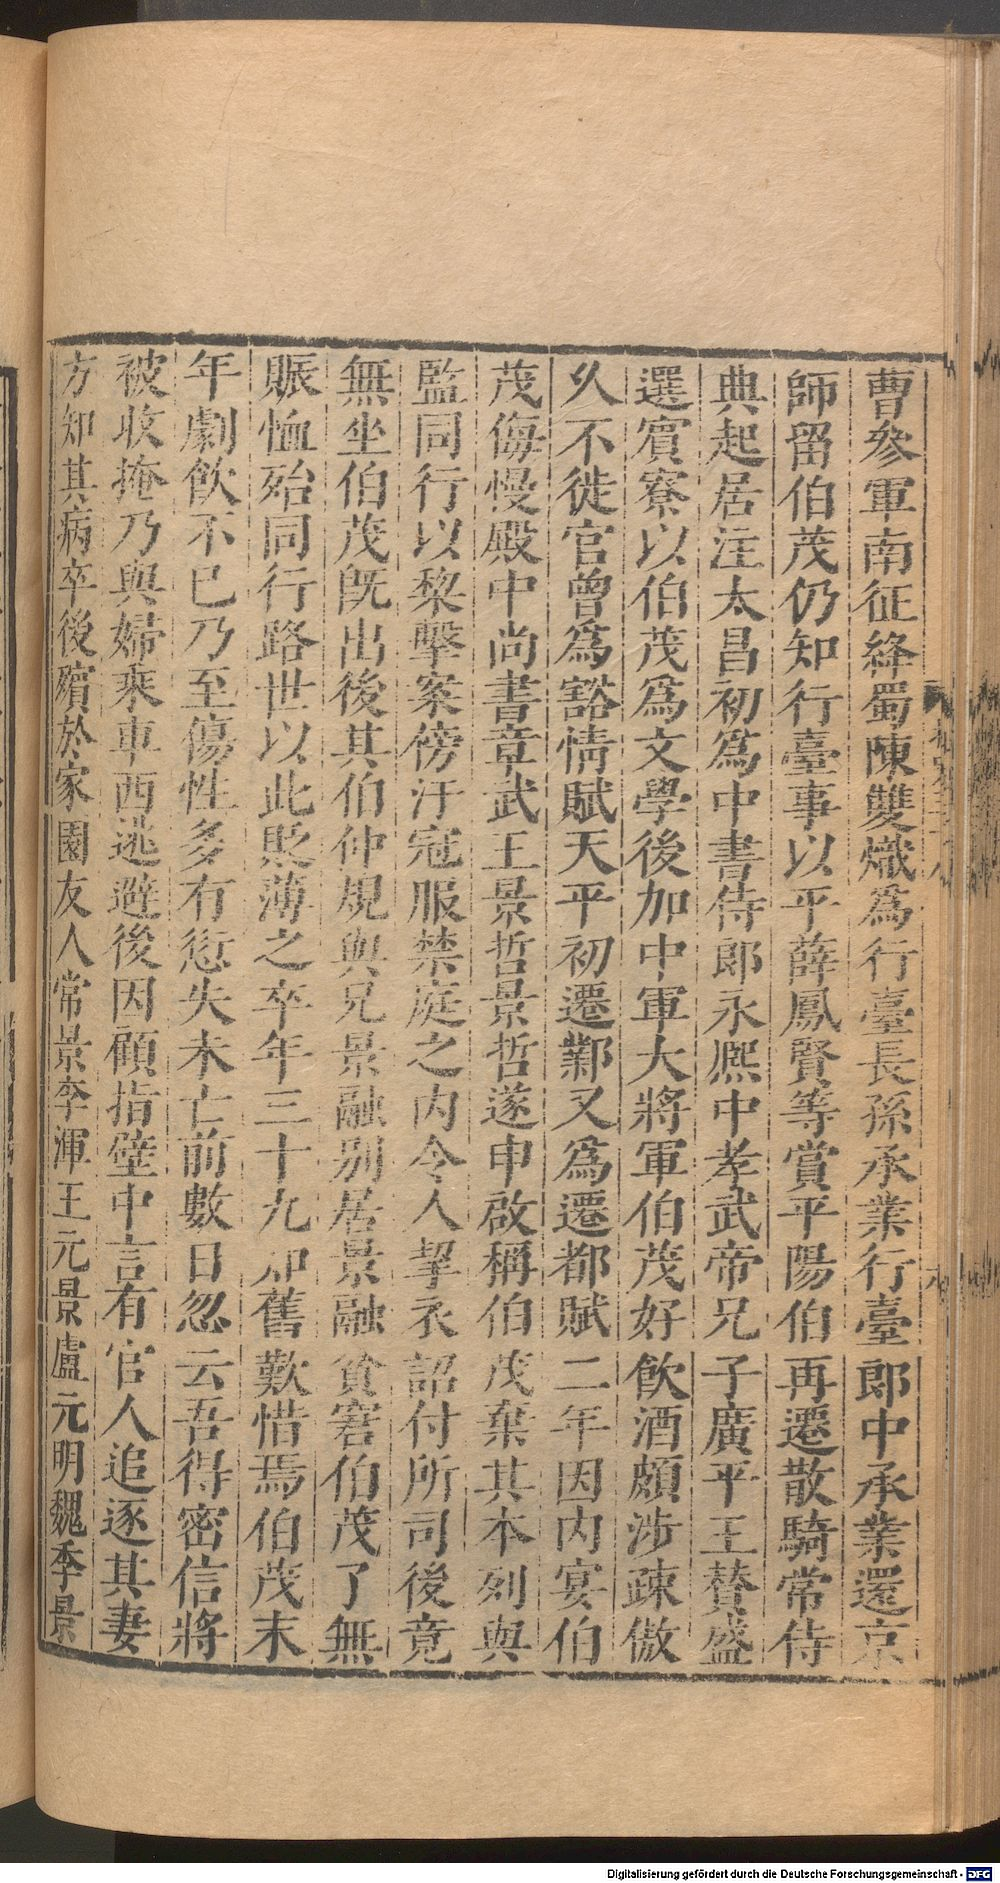 曹參軍南征絳蜀陳雙熾爲行臺長孫承業行臺郎中承業還京
師留伯茂仍知行臺事以平薛鳳賢等賞平陽伯再遷散騎常侍
典起居注太昌初爲中書侍郎永熈中孝武帝兄子廣平王贊盛
選賓寮以伯茂爲文學後加中軍大將軍伯茂好飲酒頗涉疎傲
乆不徙官曾爲豁情賦天平初遷鄴又爲遷都賦二年因内宴伯
茂侮慢殿中尚書章武王景哲景哲遂申啟稱伯茂棄其本列與
監同行以棃擊案傍汙冠服禁庭之内令人挈衣詔付所司後竟
無坐伯茂旣出後其伯仲規與兄景融别居景融貧窘伯茂了無
賑恤殆同行路世以此貶薄之卒年三十九知舊歎惜焉伯茂末
年劇飲不已乃至傷性多有愆失未亡前數日忽云吾得密信將
被收掩乃與婦乘車西逃避後因顧指壁中言有官人追逐其妻
方知其病卒後殯於家園友人常景李渾王元景盧元明魏季景
Digitalisierung gefördert durch die Deutsche Forschungsgemeinschaft - DFG